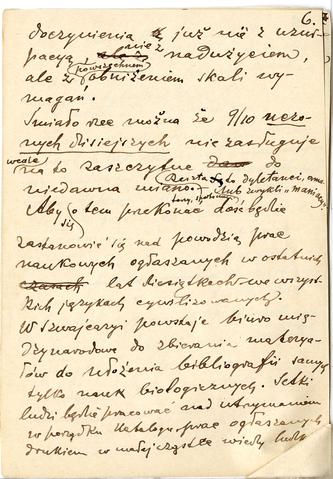 6.
doczynienia już nie z uzur-
pacyą nie z nadużyciem,
ale z powszechnem obniżeniem skali wy-
magań.
Śmiało rzec można że 9/10 uczo-
nych dzisiejszych nie zasługuje
wcale na to zaszczytne do
niedawna miano. Reszta to dyletanci, ama-
torzy, lub zwykli "maniacy"
Aby się o tem przekonać dość będzie
zastanowić się nad powodzią prac
naukowych ogłaszanych w ostatnich
czasach lat dziesiątkach we wszyst-
kich językach cywilizowanych.
W Szwajcaryi powstaje biuro mię-
dzynarodowe do zbierania materya-
łów do ułożenia bibliografii samych
tylko nauk biologicznych. Setki
ludzi będzie pracować nad utrzymaniem
w porządku katalogu prac ogłaszanych
drukiem w małej cząstce wiedzy ludz